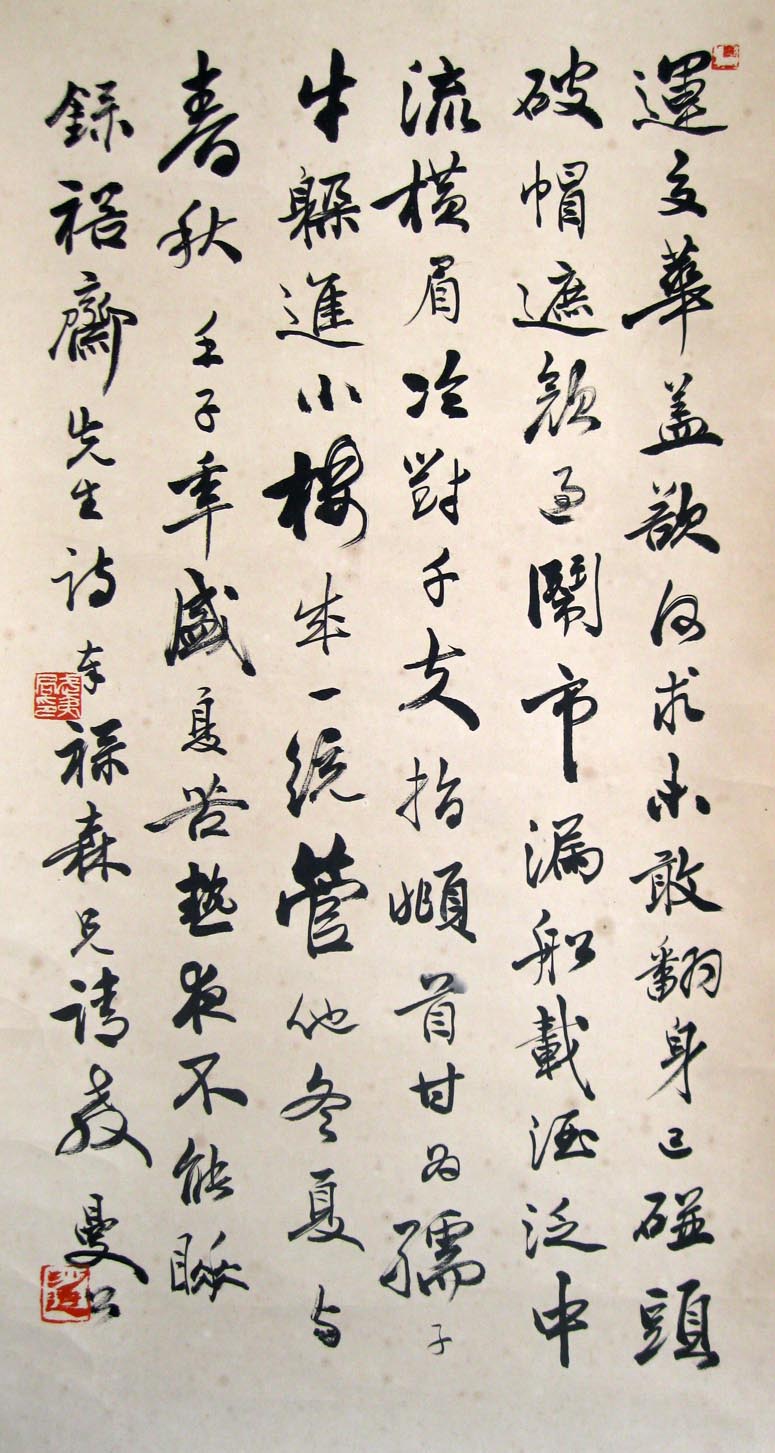 運交華蓋欲何求未敢翻身已碰頭
破帽遮顏過鬧市漏船載酒泛中
流橫眉冷對千夫指頫首甘為孺子
牛躲進小樓成一統管他冬夏与
春秋 壬子年盛夏苦熱夜不能睡
錄裕齋先生詩奉祿森兄請教 曼公